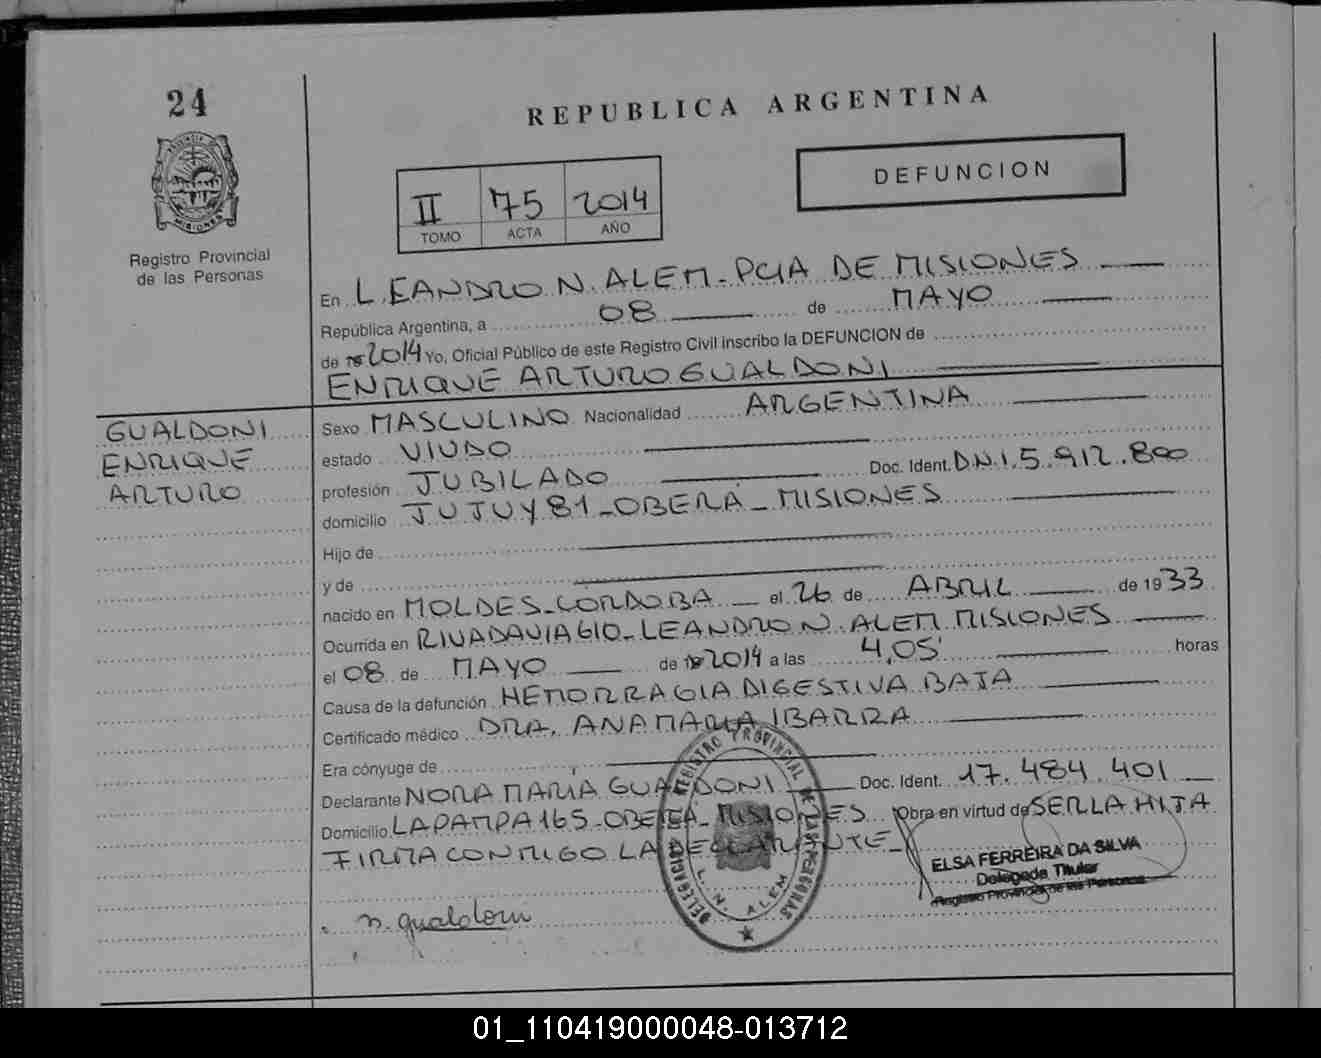 24
REPUBLICA ARGENTINA
PROVINCIA DE MISIONES
Registro Provincial
de las Personas
II 75 2014
TOMO ACTA AÑO
DEFUNCION
En LEANDRO N. ALEM - PCIA DE MISIONES
República Argentina, a 08 de MAYO
de 19 2014 Yo, Oficial Público de este Registro Civil inscribo la DEFUNCION de
ENRIQUE ARTURO GUALDONI
GUALDONI
ENRIQUE
ARTURO
Sexo MASCULINO Nacionalidad ARGENTINA
estado VIUDO
profesión JUBILADO Doc. Ident. D.N.I. 5.912.800
domicilio JUJUY 81 - OBERÁ - MISIONES
Hijo de
y de
nacido en MOLDES - CORDOBA el 26 de ABRIL de 1933
Ocurrida en RIVADAVIA 610 - LEANDRO N. ALEM MISIONES
el 08 de MAYO de 19 2014 a las 4,05' horas
Causa de la defunción HEMORRAGIA DIGESTIVA BAJA
Certificado médico DRA. ANA MARIA IBARRA
Era cónyuge de
Declarante NORA MARIA GUALDONI Doc. Ident. 17.484.401
Domicilio LA PAMPA 165 - OBERA - MISIONES Obra en virtud de SER LA HIJA
FIRMA CONMIGO LA DECLARANTE
ELSA FERREIRA DA SILVA
Delegada Titular
Registro Provincial de las Personas
DELEGACION DEL REGISTRO PROVINCIAL DE LAS PERSONAS
L. N. ALEM
n. gualdoni
01_110419000048-013712